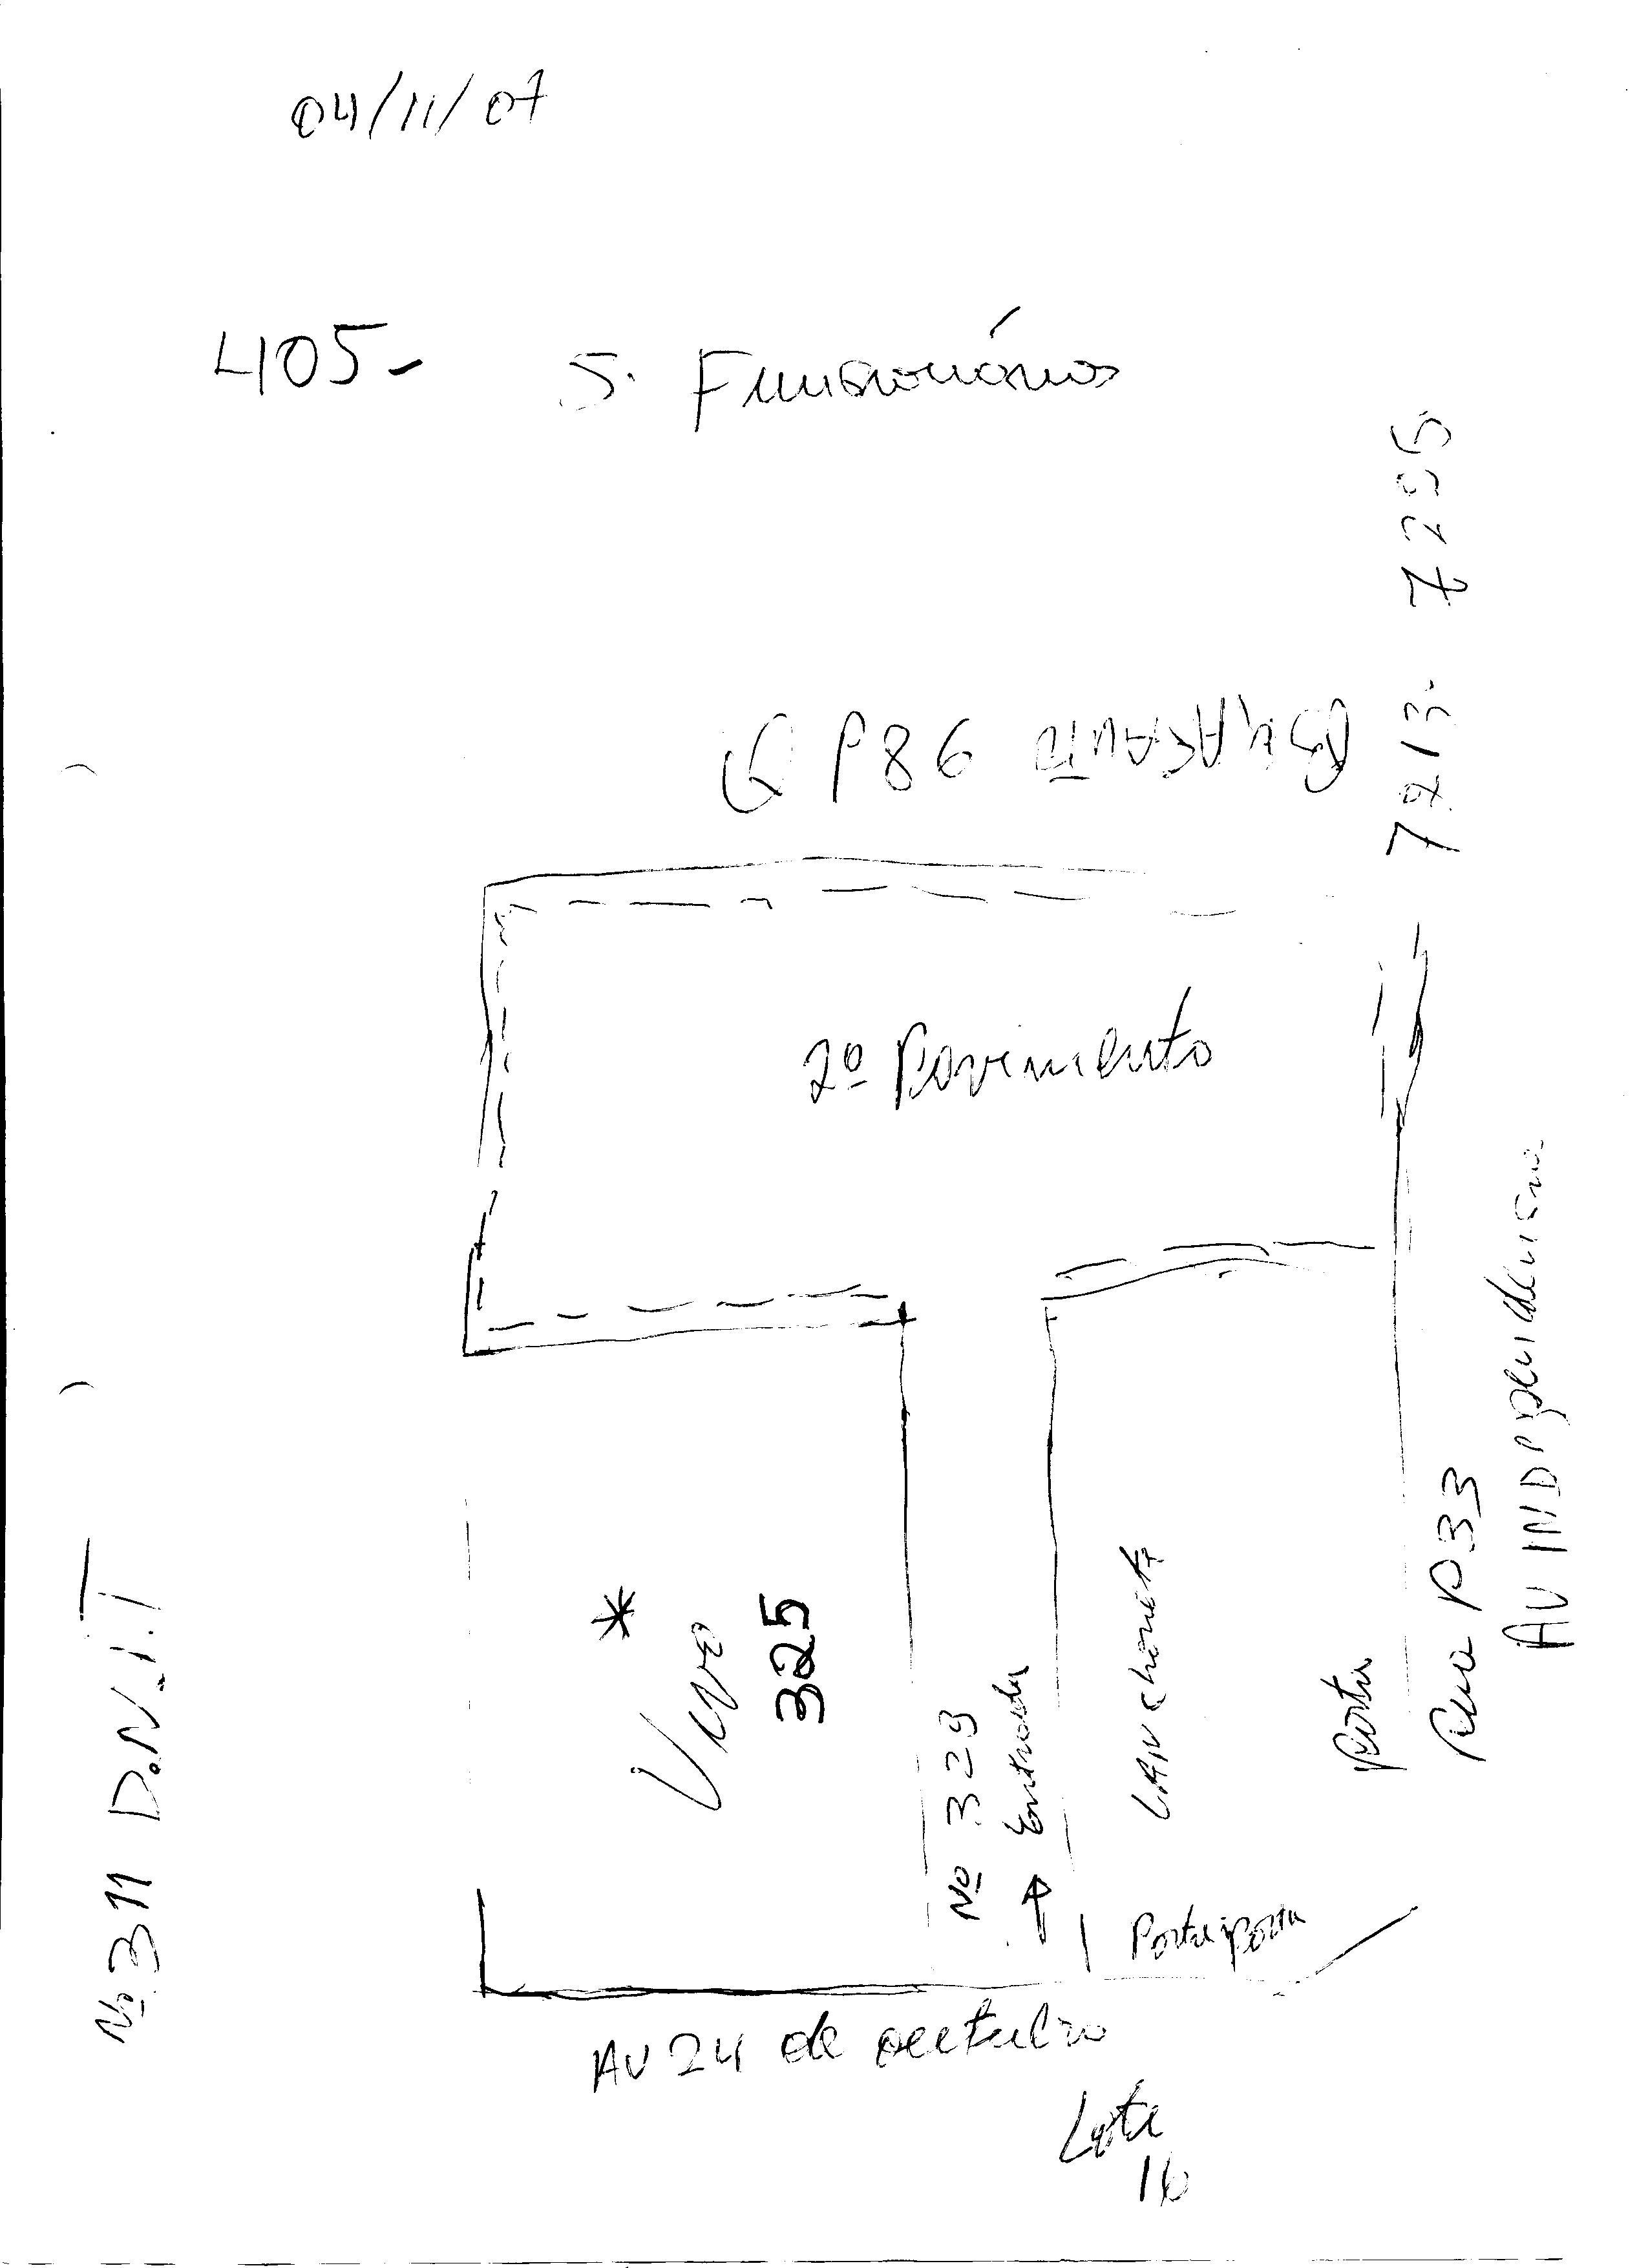 04/11/07
405- S. Funsionários
7213-7295
Q P86
2º Pavimento
AV INDependensia
Rua P33
Porta
LANchonete
Nº 323
Entrada
* Vivo
325
Nº 311 D.N.I.T
Porta Porta
AV 24 de outubro
Lote
16